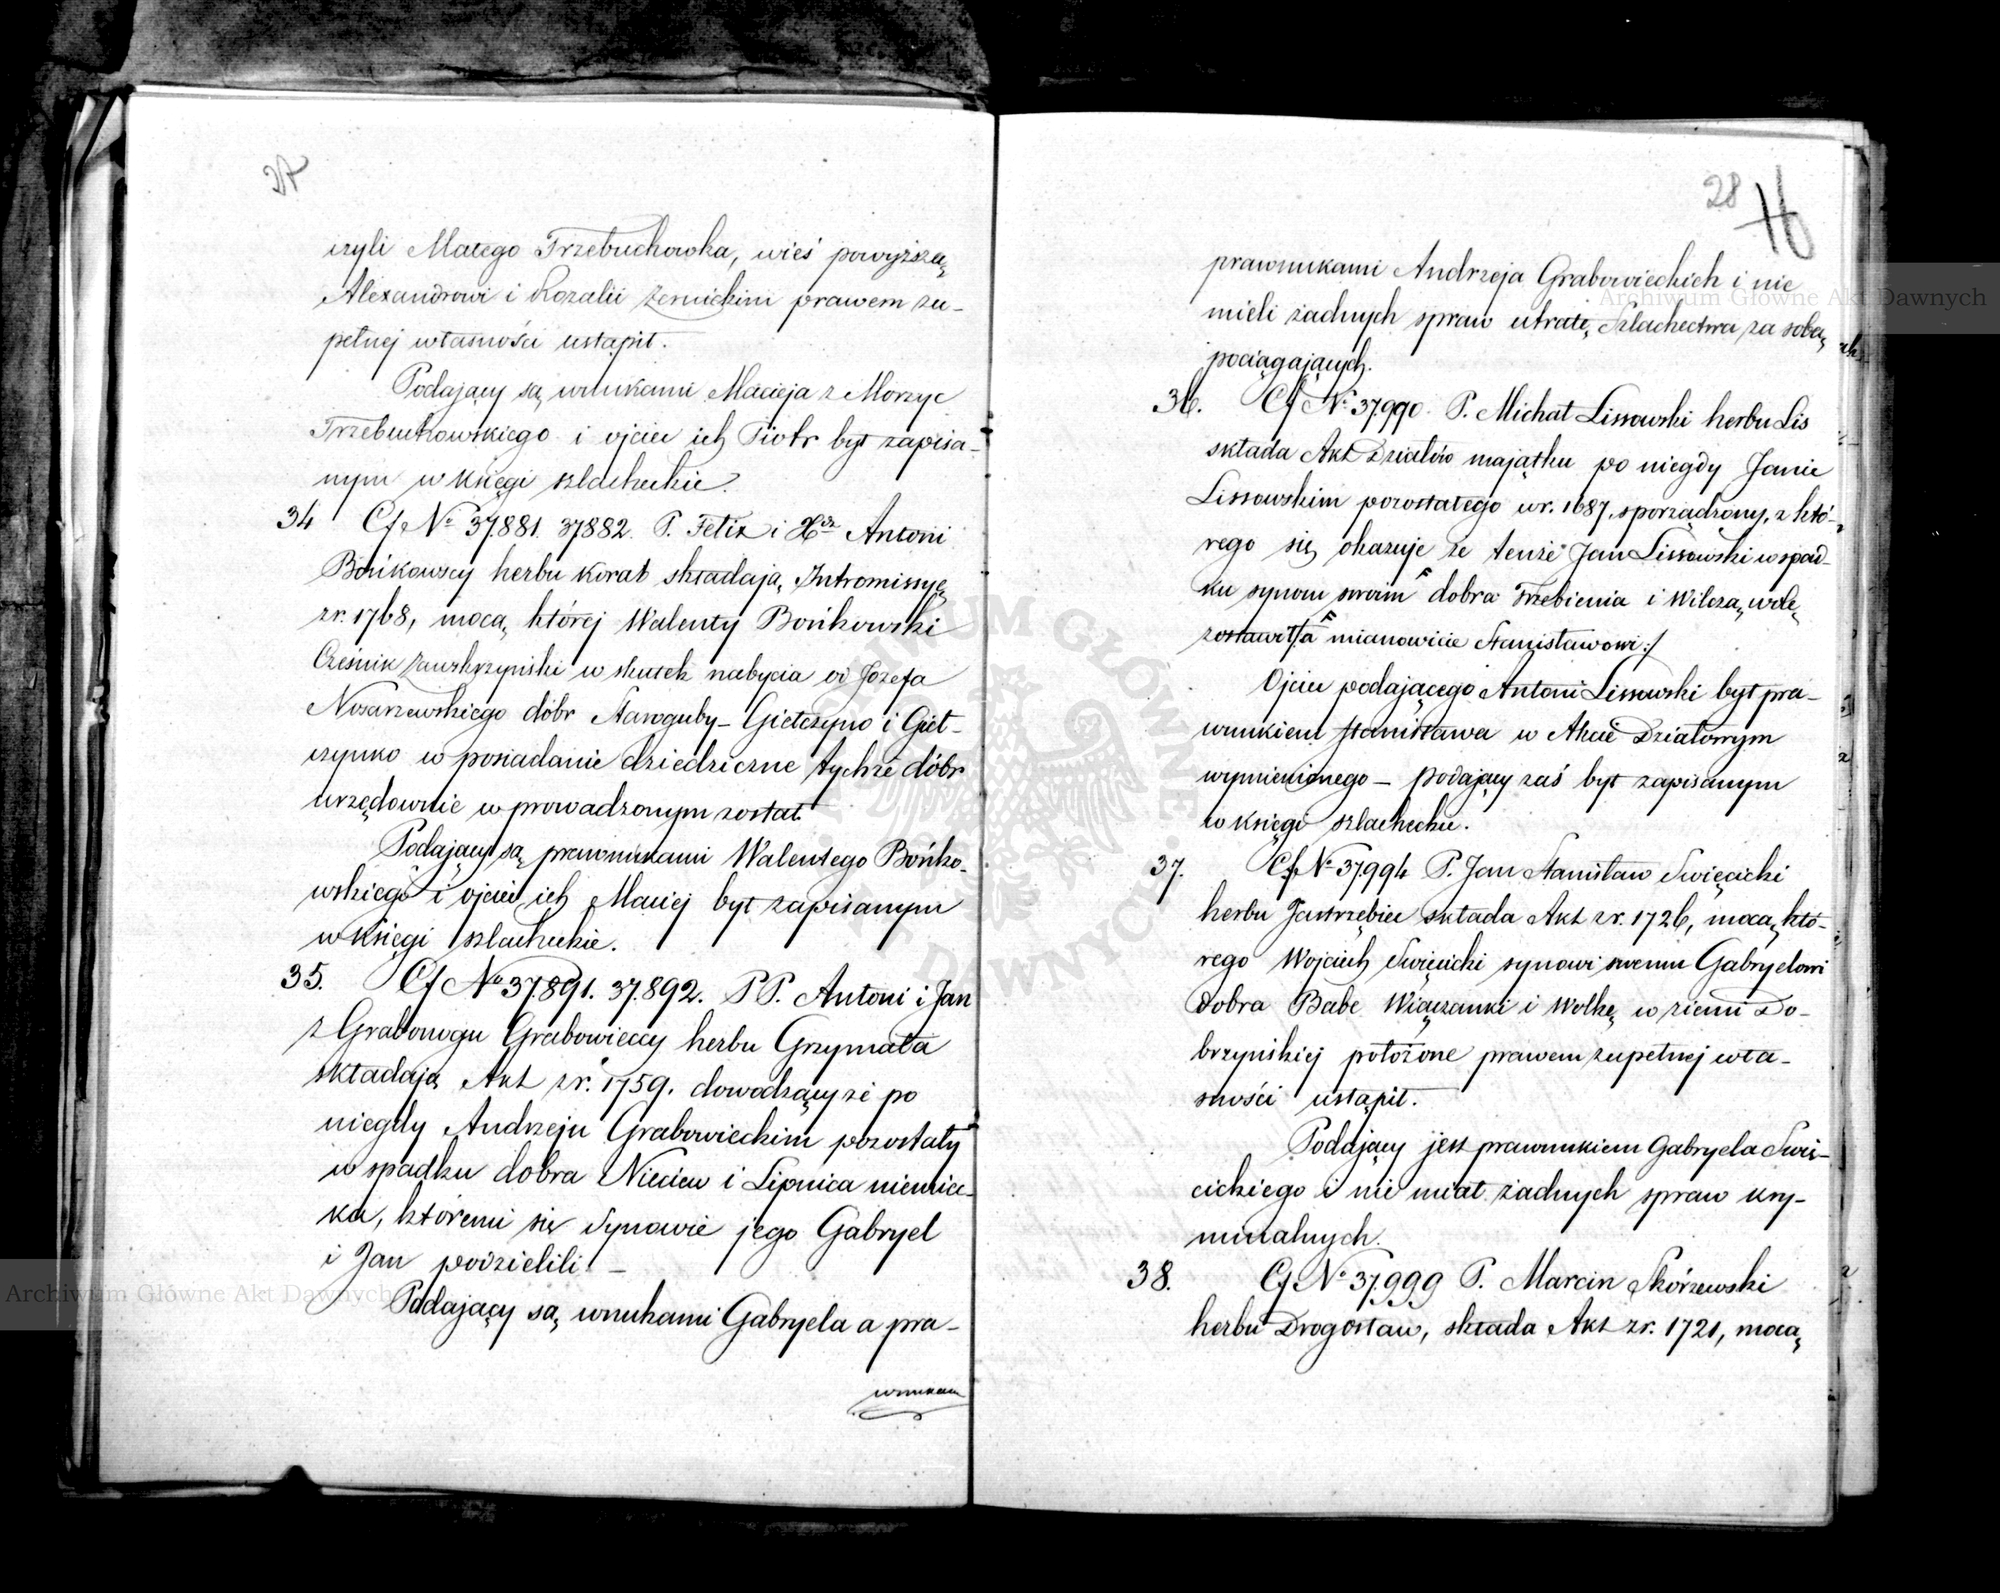 27
czyli Małego Trzebuchowka, wieś powyższą
Alexandrowi i Rozalii Żernickim prawem zu-
pełnej własności ustąpił.
Podający są wnukami Macieja z Morzyc
Trzebuchowskiego i ojciec ich Piotr był zapisa-
nym w księgi szlacheckie.
34 Cf. No 37.881. 37882. P. Felix i Xdz Antoni
Bońkowscy herbu Korab składają Intromissyę
z r. 1768, mocą której Walenty Bońkowski
Cześnik Zawskrzyński w skutek nabycia od Józefa
Nosarzewskiego dóbr Stawguby - Giełczyno i Gieł-
czynko w posiadanie dziedziczne tychże dóbr
urzędownie wprowadzonym został.
Podający są prawnukami Walentego Bońko-
wskiego i ojciec ich Maciej był zapisanym
w księgi szlacheckie.
35. Cf No 37.891. 37.892. PP. Antoni i Jan
z Grabowgu Grabowieccy herbu Grzymała
składają Akt z r. 1759. dowodzący że po
niegdy Andrzeju Grabowieckim pozostały
w spadku dobra Nieciew i Lipnica niemiec-
ka, któremi się Synowie jego Gabryel
i Jan podzielili -
Podający są wnukami Gabryela a pra-
wnukam
28
prawnukami Andrzeja Grabowieckich i nie
mieli żadnych spraw utratę Szlachectwa za sobą
pociągających.
36. Cf No 37.990. P. Michał Lissowski herbu Lis
składa Akt Działów majątku po niegdy Janie
Lissowskim pozostałego w r. 1687, sporządzony, z któ-
rego się okazuje że tenże Jan Lissowski w spad-
ku synom swoim dobra Trzebienia i Wilczą wolę
zostawił /: a mianowicie Stanisławowi :/
Ojciec podającego Antoni Lissowski był pra-
wnukiem Stanisława w Akcie Działowym
wymienionego - podający zaś był zapisanym
w księgi szlacheckie.
37. Cf No 37.994 P. Jan Stanisław Swięcicki
herbu Jastrzębiec składa Akt z r. 1726, mocą któ-
rego Wojciech Swięcicki synowi swemu Gabryelowi
dobra Babe Wiączanki i Wolkę w ziemi Do-
brzyńskiej położone prawem zupełnej wła-
sności ustąpił.
Podający jest prawnukiem Gabryela Swię-
cickiego i nie miał żadnych spraw kry-
minalnych.
38. Cf No 37.999 P. Marcin Skórzewski
herbu Drogosław, składa Akt z r. 1721, mocą
Archiwum Główne Akt Dawnych
Archiwum Główne Akt Dawnych
ARCHIWUM GŁÓWNE AKT DAWNYCH